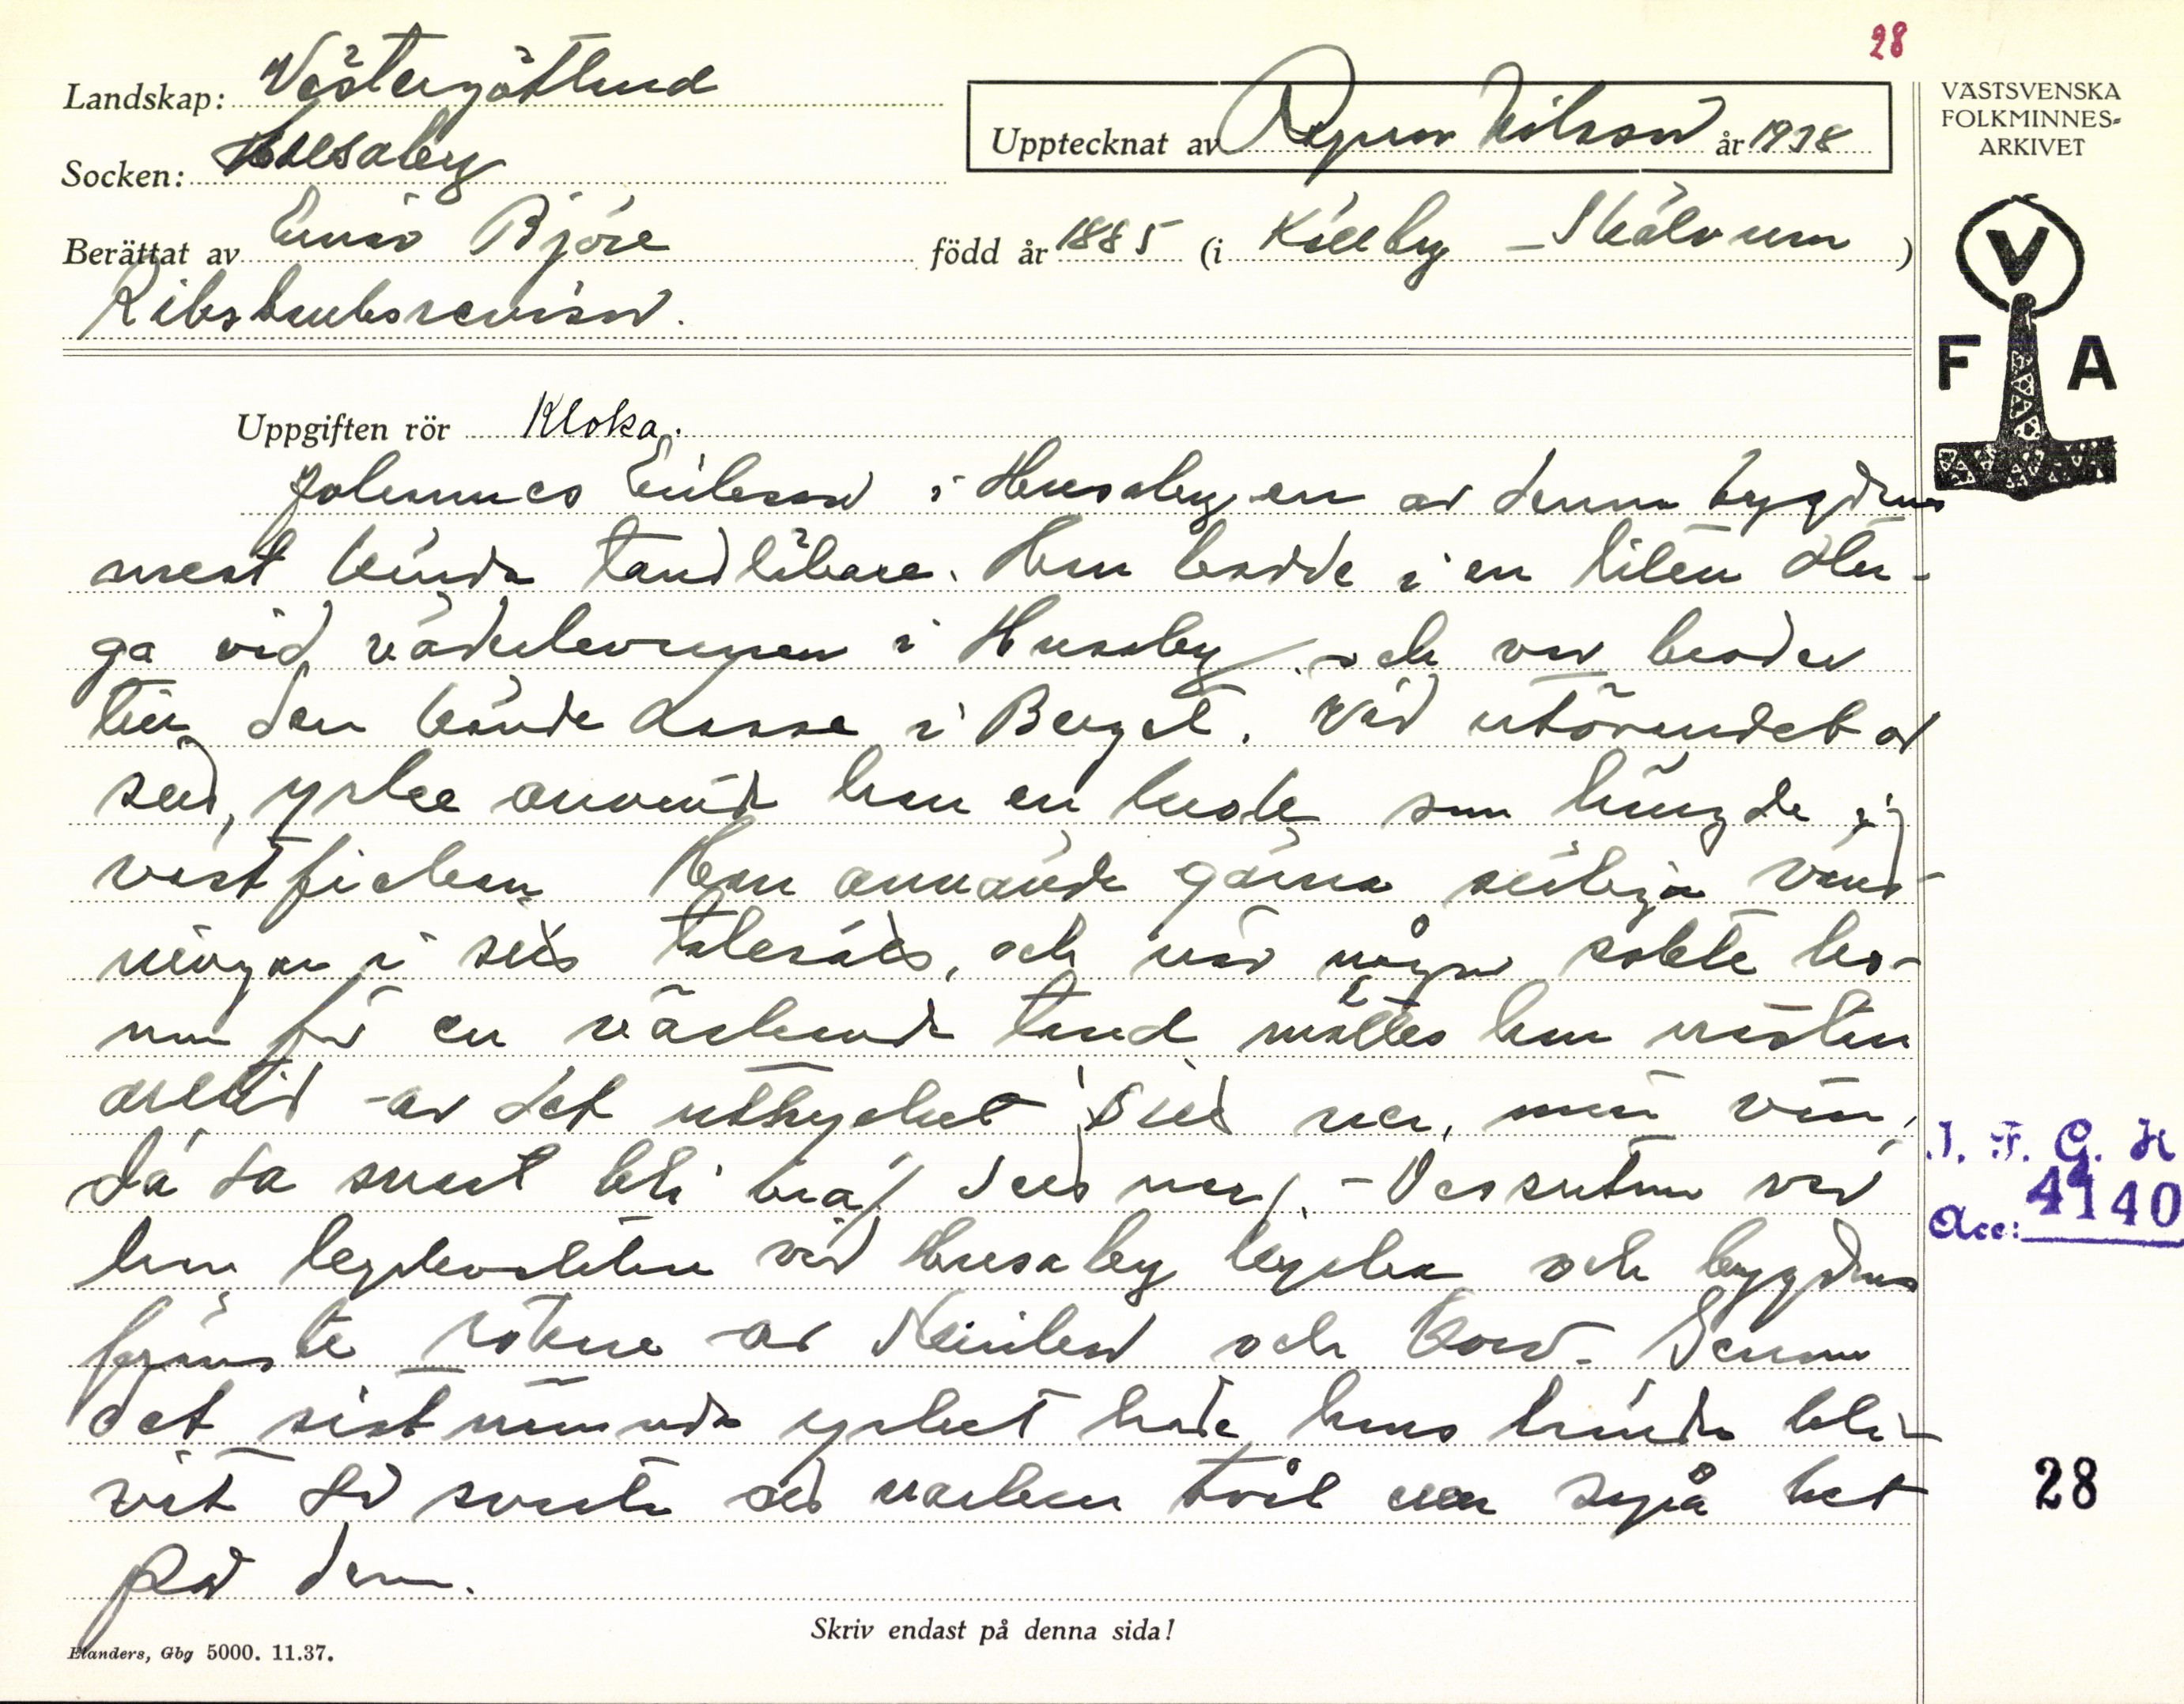 28
Landskap: Västergötland
Socken: Husaby
Upptecknat av Ragnar Nilsson år 1938
VÄSTSVENSKA
FOLKMINNES-
ARKIVET
Berättat av Einar Björe född år 1885 (i Källby - Skälvum)
Riksbanksrevisor.
V
F A
Uppgiften rör Kloka.
Johannes Eriksson i Husaby en av denna bygdens
mest kända tandläkare. Han bodde i en liten stu-
ga vid väderkvarnen i Husaby och var broder
till den kände Lasse i Berget. Vid utövandet av
sitt yrke använde han en som hängde i
västfickan. Han använde gärna vänd-
ningar i sitt talesätt, och när någon sökte ho-
nom för en värkande tand möttes han nästan
alltid av det uttrycket Sitt ner, min vän,
då ska snart bli bra / Sitt ner /. - Dessutom var
han kyrkvaktare vid Husaby kyrka och bygdens
främste av och korv. Genom
det sistnämnda yrket hade hans händer bli-
vit så svarta att varken tvål eller såpa bet
på dem.
J. F. G. H
Acc: 4140
28
Skriv endast på denna sida!
Elanders, Gbg 5000. 11.37.